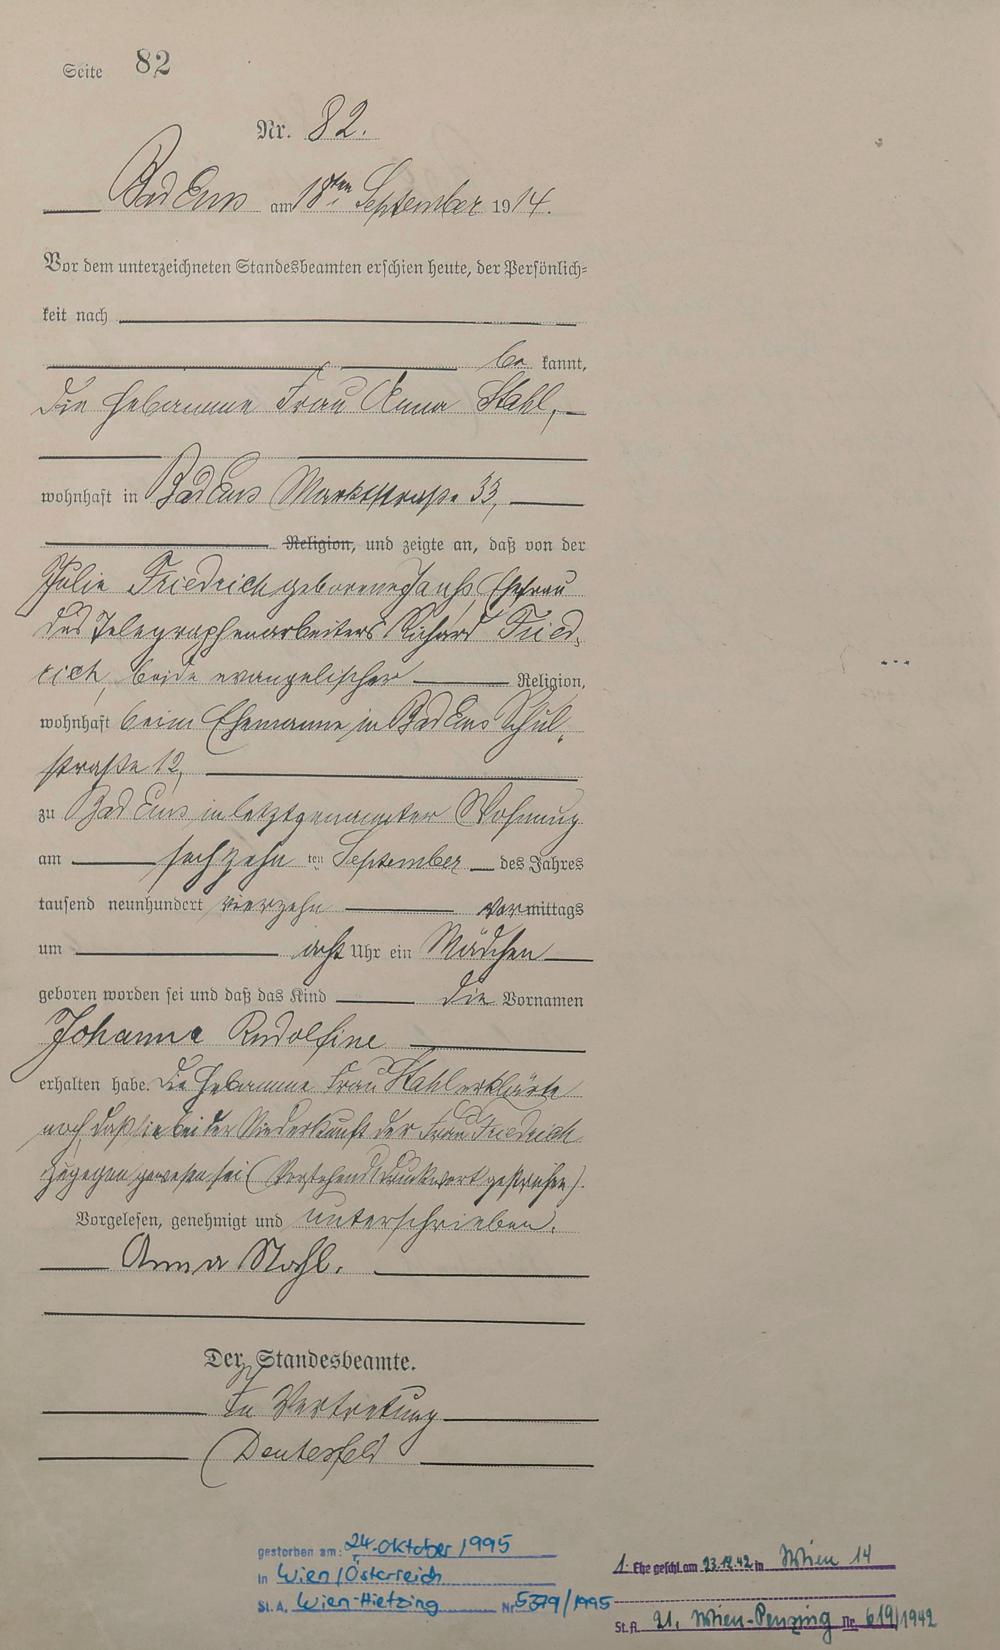 Seite 82
Nr. 82.
Bad Ems am 18ten September 1914.
Vor dem unterzeichneten Standesbeamten erschien heute, der Persönlich-
keit nach
be kannt,
die Hebamme Frau Anna Stahl,
wohnhaft in Bad Ems Marktstraße 33,
Religion, und zeigte an, daß von der
Julie Friedrich geborene Ehefrau
des Telegraphenarbeiters Richard Fried-
rich, beide evangelischer Religion,
wohnhaft beim Ehemanne in Bad Ems Schul-
straße 12,
zu Bad Ems in letztgenannter Wohnung
am sechzehn ten September des Jahres
tausend neunhundert vierzehn vormittags
um acht Uhr ein Mädchen
geboren worden sei und daß das Kind die Vornamen
Johanna Rudolfine
erhalten habe. Die Hebamme Frau Stahl erklärte
noch, daß sie bei der Niederkunft der Frau Friedrich
zugegen gewesen sei (Vorstehend 1 Druckwort gestrichen).
Vorgelesen, genehmigt und unterschrieben.
Anna Stahl.
Der Standesbeamte.
In Vertretung
gestorben am: 24. Oktober 1995
in Wien/Österreich
St. A. Wien-Hietzing Nr 5379/1995
1. Ehe geschl. am 23.12.42 in Wien 14
St.A. 21, Wien-Penzing Nr. 619/1942